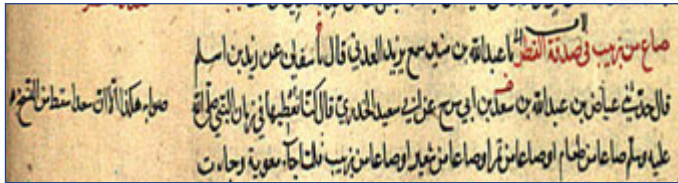 صاع من زبيب في صدقة الفطر نا عبدالله بن منير سمع يزيد العدني قال نا سفين عن زيد بن اسلم
قال حدثني عياض بن عبد الله بن سعد بن ابي سرح عن ابي سعيد الخدري قال كنا نعطيها في زمان النبي صلى الله
عليه وسلم صاعا من طعام او صاعا من تمر او صاعا من شعير او صاعا من زبيب فلما جاء معوية وجاءت
صوابه هكذا الا ان سعدا سقط من النسخ